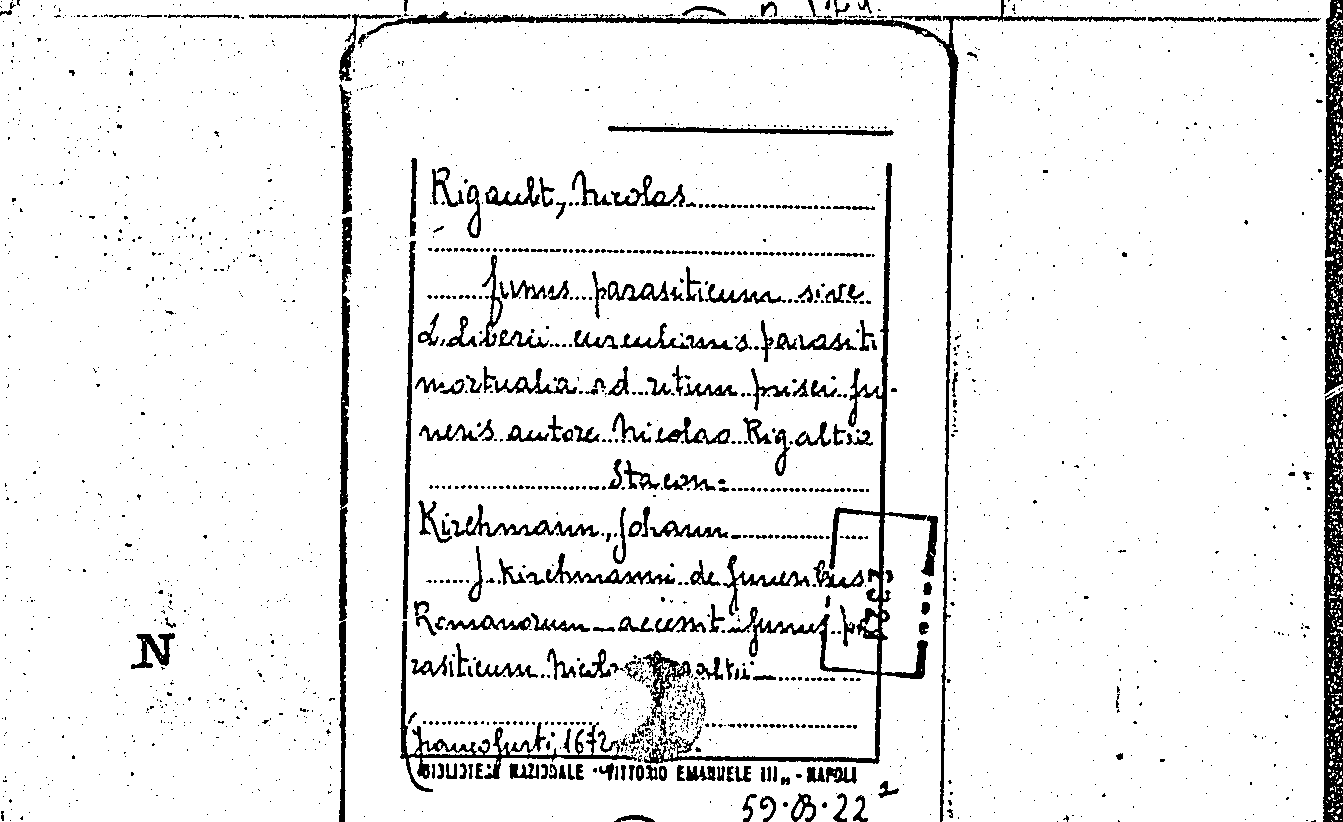 Rigault, Nicolas
funus parasiticum sive
L. Liberii curculionis parasiti
mortualia ad ritum prisci fu-
neris autore Nicolao Rigaltio
Sta con:
Kirchmann, Johann
J. Kirchmanni de funeribus
Romanorum accessit funus pa
rasiticum Nicolai Rigaltii
N
francofurti, 1672
BIBLIOTECA NAZIONALE "VITTORIO EMANUELE III" - NAPOLI
59.B.22²